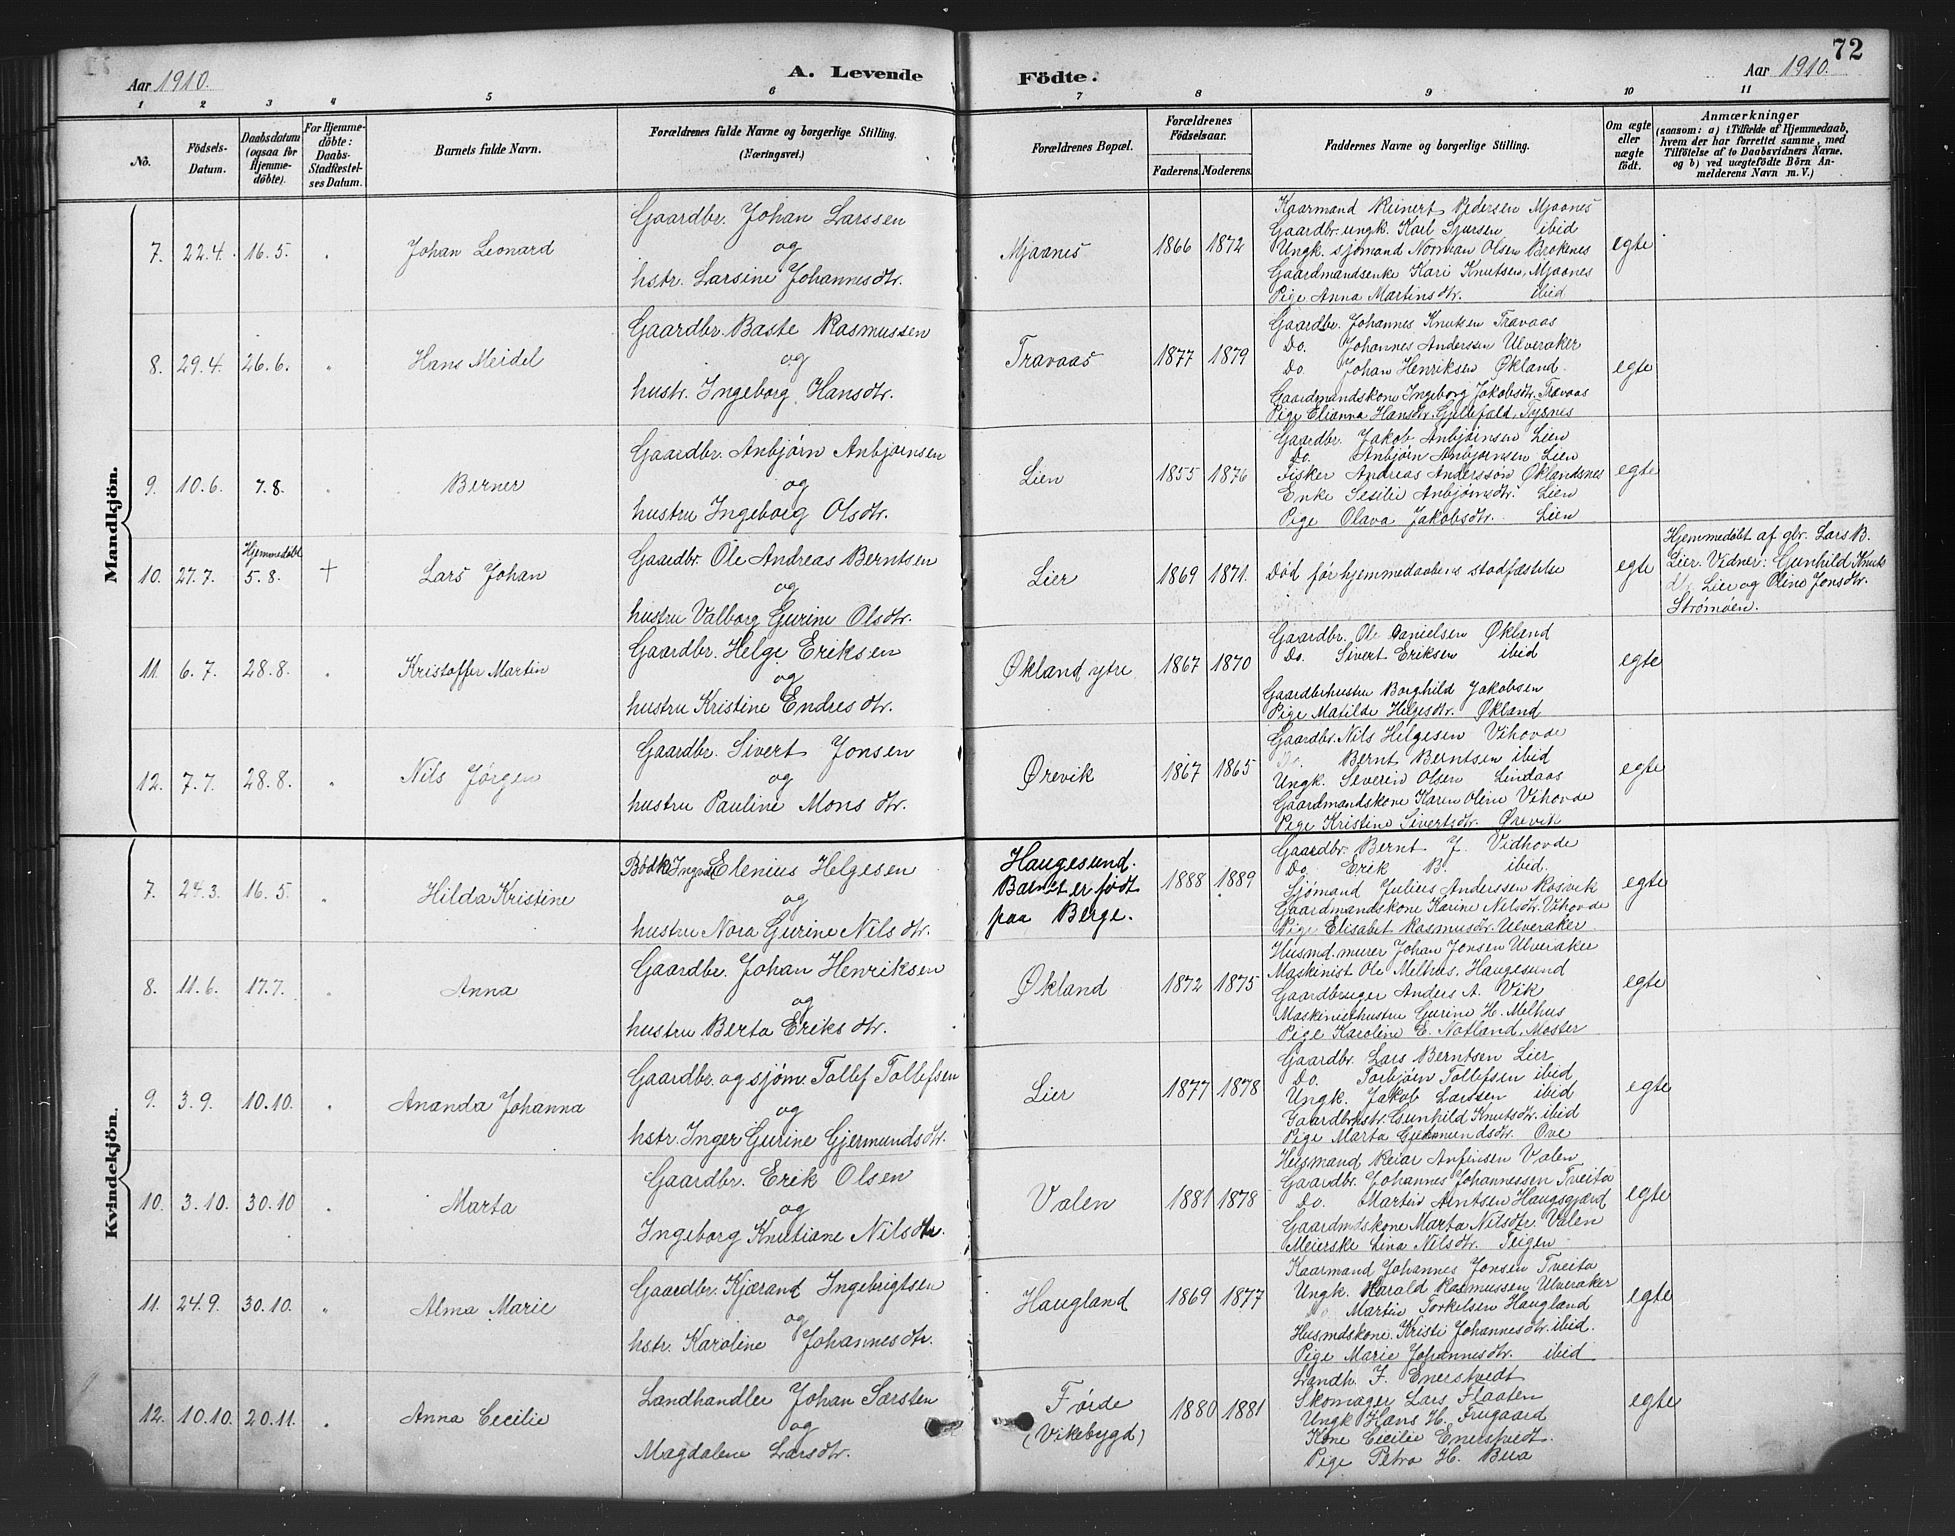 72
Aar 1910.
A. Levende Födte.
Aar 1910.
1 2 3 4 5 6 7 8 9 10 11
No.
Födsels-Datum.
Daabsdatum (ogsaa for Hjemme-døbte).
For Hjemme-döbte: Daabs-Stadfæstel-ses Datum.
Barnets fulde Navn.
Forældrenes fulde Navne og borgerlige Stilling.
(Næringsvei.)
Forældrenes Bopæl.
Forældrenes Födselsaar.
Faderens. Moderens.
Faddernes Navne og borgerlige Stilling.
Om ægte eller uægte født.
Anmærkninger
(saasom: a) i Tilfælde af Hjemmedaab, hvem der har forrettet samme, med Tilföielse af to Daabsvidners Navne, og b) ved uegtefödte Börn An-melderens Navn m. V.)
Mandkjön.
7. 22.4. 16.5. Johan Leonard
Gaardbr. Johan Larssen
og
hstr. Larsine Johannesdtr.
Mjaanes 1866 1872
Kaarmand Reinert Pedersen Mjaanes
Gaardbr. ungk. Karl Sjursen ibid
Ungk. sjömand Norman Olsen Brokenes
Gaardmandsenke Kari Knutsen, Mjaanes
Pige Anna Martinsdtr. ibid
egte
8. 29.4. 26.6. Hans Meidel
Gaardbr. Baste Rasmussen
og
hustr. Ingeborg Hansdtr.
Travaas 1877 1879
Gaardbr. Johannes Knutsen Travaas
Do. Johannes Anderssen Ulveraker
Do. Johan Henriksen Økland.
Gaardmandskone Ingeborg Jakobsdtr. Travaas
Pige Elianna Hansdtr. Tysnes
egte
9. 10.6. 7.8. Berner
Gaardbr. Anbjørn Anbjørnsen
og
hustru Ingeborg Olsdtr.
Lien 1855 1876
Gaardbr. Jakob Anbjørnsen Lien
Do. Anbjørn Anbjørnsen Lien
Fisker Andreas Andersson Øklandsnes
Enke Sesilie Anbjørnsdtr. Lien
Pige Olava Jakobsdtr. Lien
egte
10. 27.7. Hjemmedøbt 5.8. † Lars Johan
Gaardbr. Ole Andreas Berntsen
og
hustru Valborg Gurine Olsdtr.
Lier 1869 1871.
Død før hjemmedaabens stadfæstelse
egte
Hjemmedøbt af gbr. Lars B.
Lier. Vidner: Gunhild Knuts
dtr Lier og Oline Jonsdtr.
Strømøen.
11. 6.7. 28.8. Kristoffer Martin
Gaardbr. Helge Eriksen
og
hustru Kristine Endresdtr.
Økland ytre 1867 1870
Gaardbr. Ole Danielsen Økland
Do. Sivert Eriksen ibid
Gaardbrhustru Borghild Jakobsen
Pige Matilde Helgesdtr. Økland
egte
12. 7.7. 28.8. Nils Jørgen
Gaardbr. Sivert Jonsen
og
hustru Pauline Monsdtr.
Ørevik 1867 1865
Gaardbr. Nils Helgesen Vihovde
Do. Bernt Berntsen ibid
Ungk. Severin Olsen Lindaas
Gaardmandskone Karen Oline Vihovde
Pige Kristine Sivertsdtr. Ørevik
egte
Kvindekjön.
7. 24.3. 16.5. Hilda Kristine
Elenius Helgesen
og
hustru Nora Gurine Nilsdtr.
Haugesund.
Barnet er født
paa Berge.
1888 1889
Gaardbr. Bernt J. Vidhovde
Do. Erik B. ibid.
Sjömand Julius Anderssen Rosvik
Gaardmandskone Karine Nilsdtr. Vihovde
Pige Elisabet Rasmusdtr. Ulveraker
egte
8. 11.6. 17.7. Anna
Gaardbr. Johan Henriksen
og
hustru Berta Eriksdtr.
Økland 1872 1875
Husmd. murer Johan Jonsen Ulveraker
Maskinist Ole Melhus, Haugesund
Gaardbruger Anders A. Vik
Maskinisthustru Gurine H. Melhus
Pige Karoline E. Notland, Moster
egte
9. 3.9. 10.10. Ananda Johanna
Gaardbr. og sjöm. Tollef Tollefsen
og
hstr. Inger Gurine Gjermundsdtr.
Lier 1877 1878
Gaardbr. Lars Berntsen Lier
Do. Torbjørn Tollefsen ibid
Ungk. Jakob Larssen ibid
Gaardbrhstr. Gunhild Knutsdtr. ibid
Pige Marta Gjermundsdtr. Ove
egte
10. 3.10. 30.10 Marta
Gaardbr. Erik Olsen
og
Ingeborg Knutiane Nilsdtr.
Valen 1881 1878
Husmand Reiar Anfinsen Valen
Gaardbr. Johannes Johannessen Tveita
Do. Martin Arntsen Haugsgjærd
Gaardmdskone Marta Nilsdtr. Valen
Meierske Lina Nilsdtr. Teigen
egte
11. 24.9. 30.10. Alma Marie
Gaardbr. Kjærand Ingebrigtsen
og
hstr. Karoline Johannesdtr.
Haugland 1869 1877
Kaarmand Johannes Jonsen Tveita
Ungk. Harald Rasmussen Ulveraker
Do Martin Torkelsen Haugland
Husmdskone Kristi Johannesdtr. ibid.
Pige Marie Johannesdtr. ibid
egte
12. 10.10. 20.11. Anna Cecilie
Landhandler Johan Sarsten
og
Magdalene Larsdtr.
Førde
(Vikebygd)
1880 1881
Landh. F. Enerstvedt
Skomager Lars Flaaten
Ungk Hans H. Frugaard
Kone Cecilie Enerstvedt.
Pige Petra H. Bua
egte